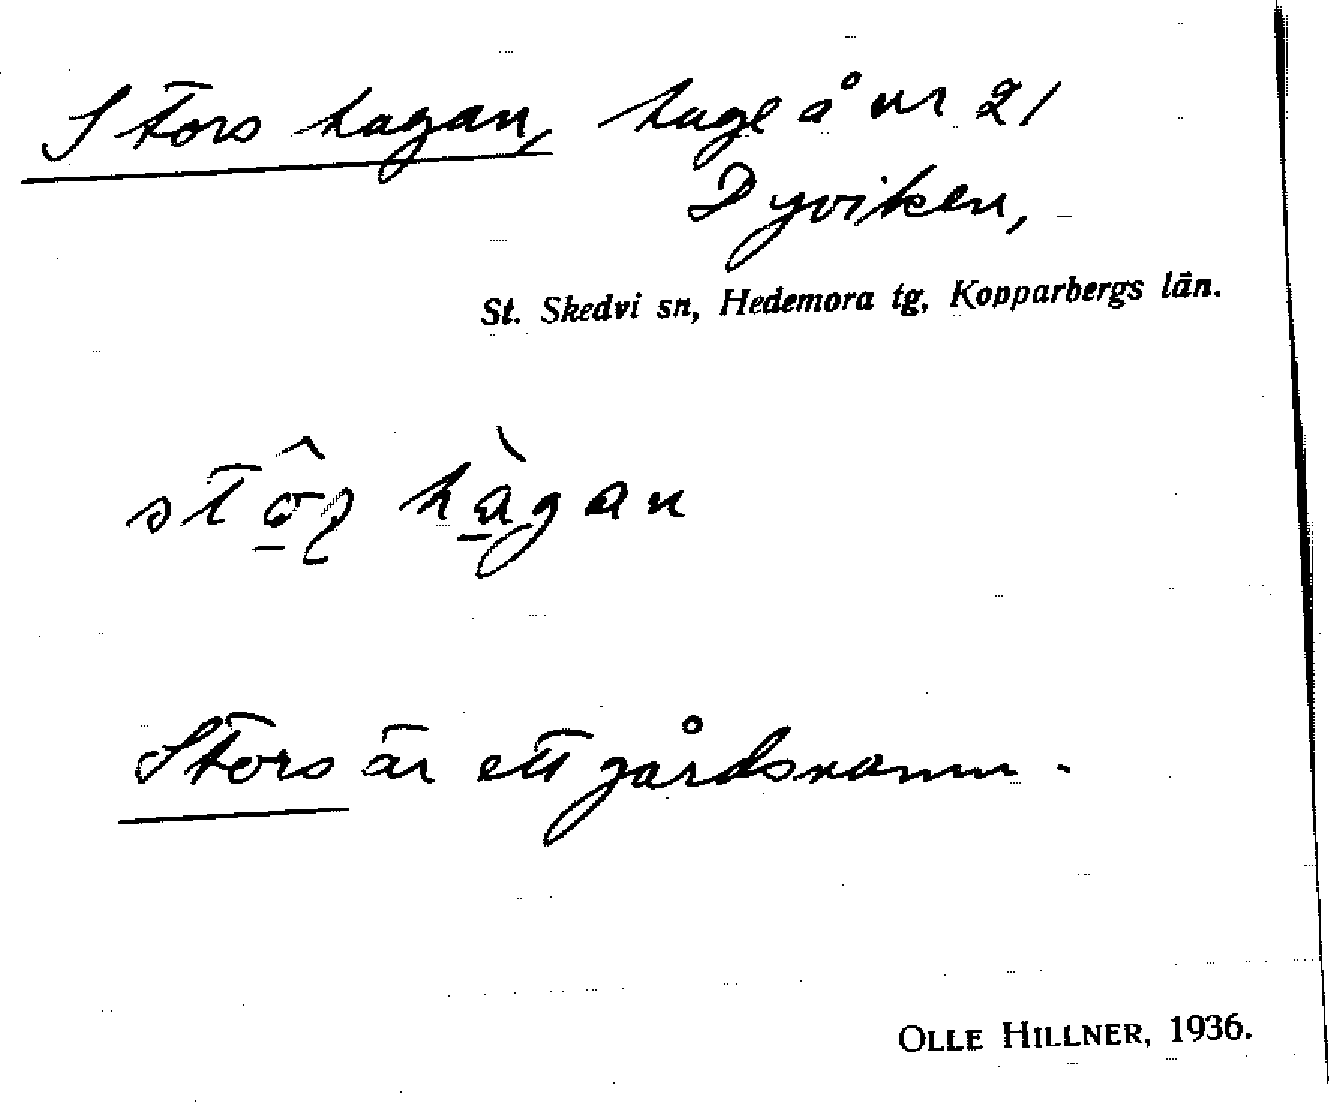 Stors hagan, hage å nr 21
Dyviken,
St. Skedvi sn, Hedemora tg, Kopparbergs län.
hàgan
Stors är ett gårdsnamn.
OLLE HILLNER, 1936.